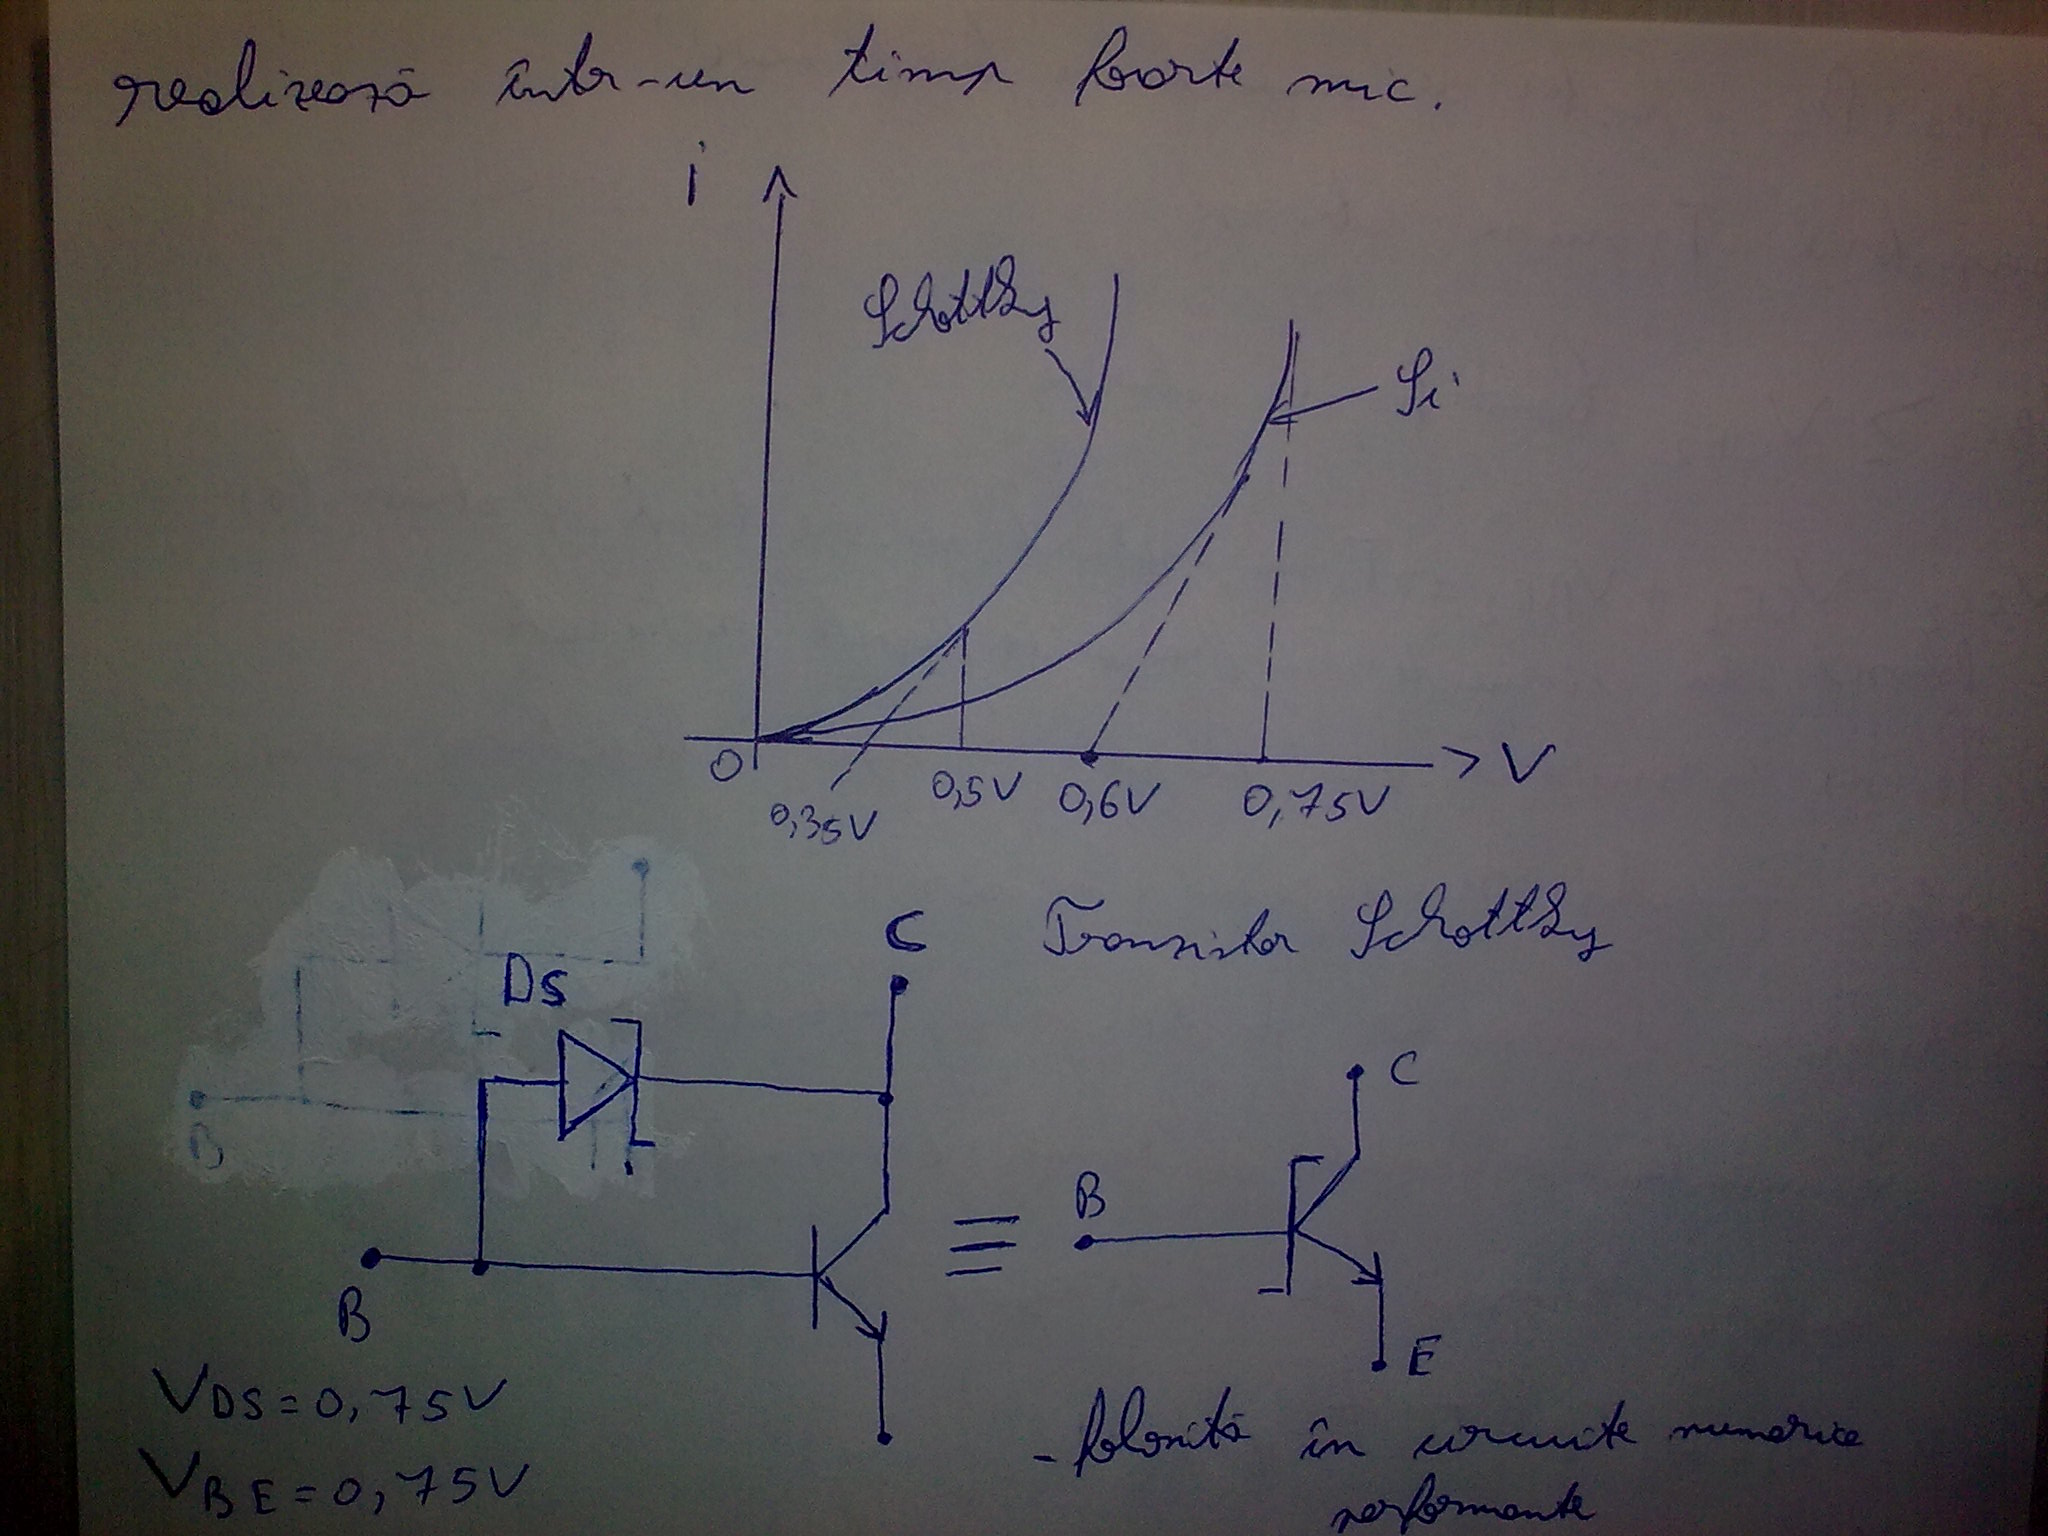 realizează într-un timp foarte mic.
i
Schottky
Si
0
0,35V
0,5V
0,6V
0,75V
V
C
Tranzistor Schottky
DS
C
B
B
B
E
VDS=0,75V
VBE=0,75V
- folosită în circuite numerice
performante